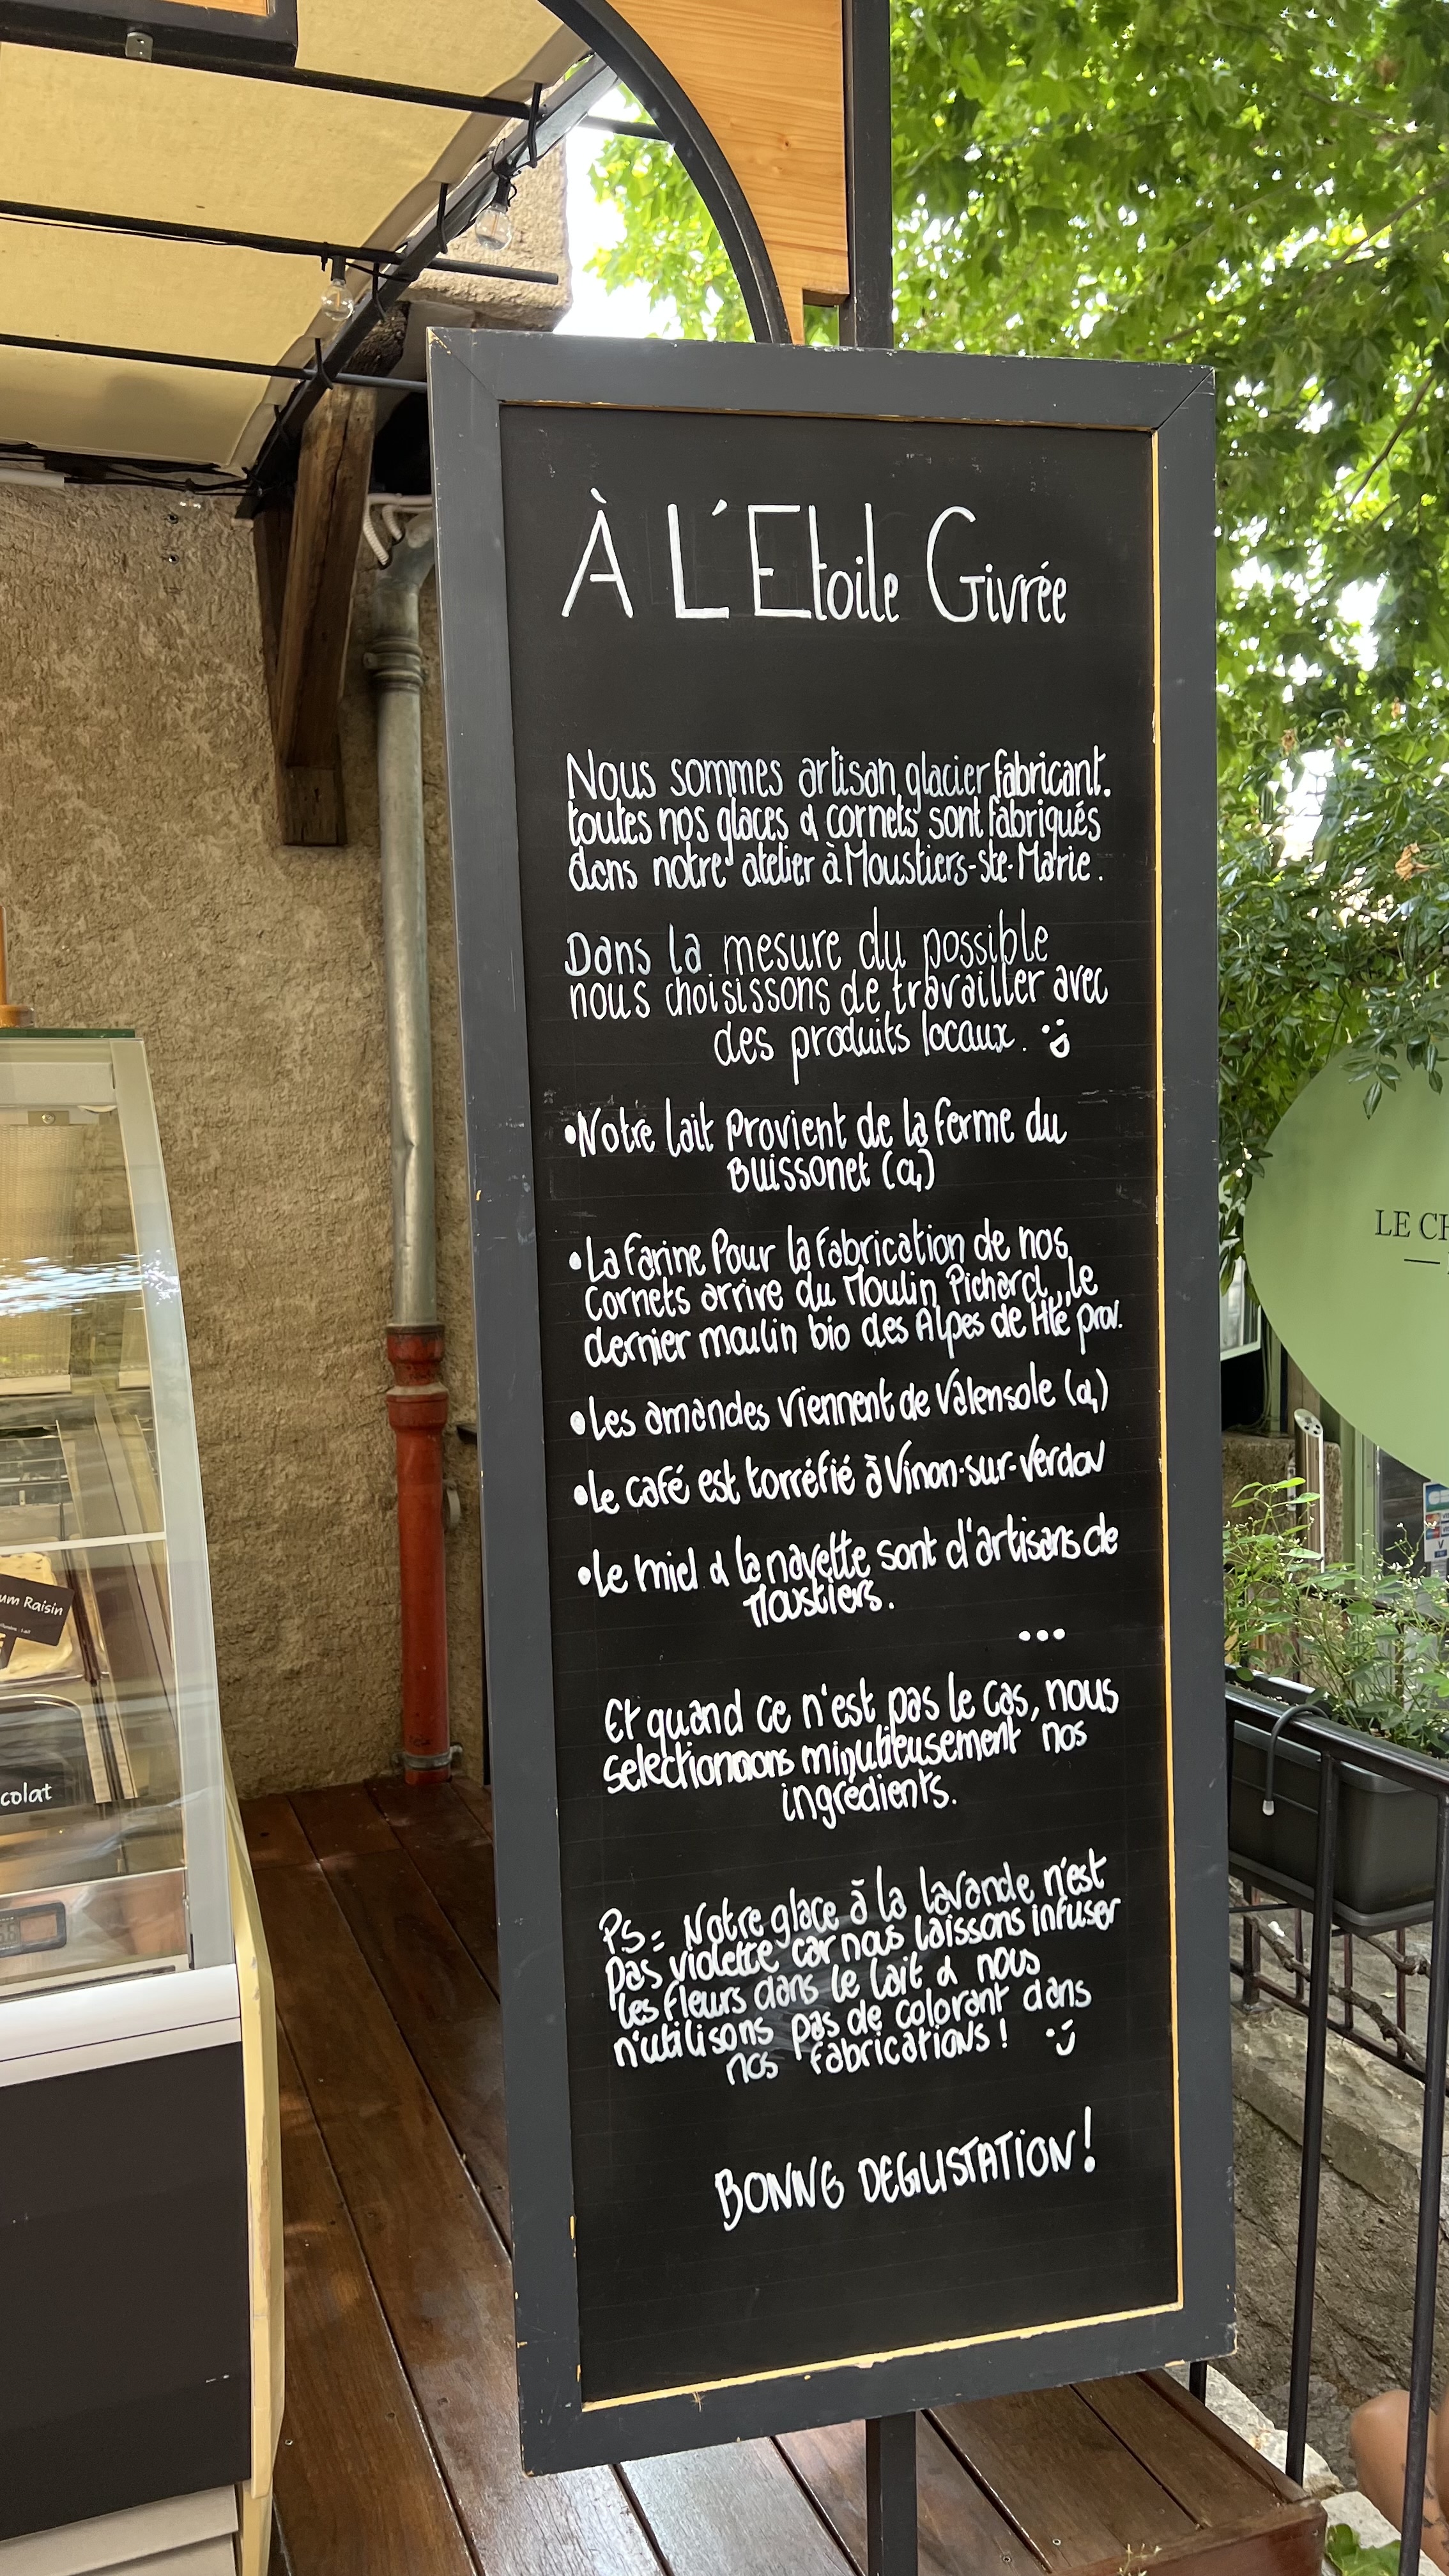 À L'Etoile Givrée
Nous sommes artisan glacier fabricant.
toutes nos glaces & cornets sont fabriqués
dans notre atelier à Moustiers-ste-Marie.
Dans la mesure du possible
nous choisissons de travailler avec
des produits locaux.
•Notre lait Provient de la ferme du
Buissonet (04)
•La farine Pour la fabrication de nos
Cornets arrive du Moulin Pichard, le
dernier moulin bio des Alpes de Hte prov.
•Les amandes viennent de Valensole (04)
•Le café est torréfié à Vinon-sur-Verdon
•Le miel & la navette sont d'artisans de
Moustiers.
...
Et quand ce n'est pas le cas, nous
selectionnons minutieusement nos
ingrédients.
PS = Notre glace à la lavande n'est
pas violette car nous laissons infuser
les fleurs dans le lait & nous
n'utilisons pas de colorant dans
nos fabrications !
BONNE DEGUSTATION !
um Raisin
colat
LE CH